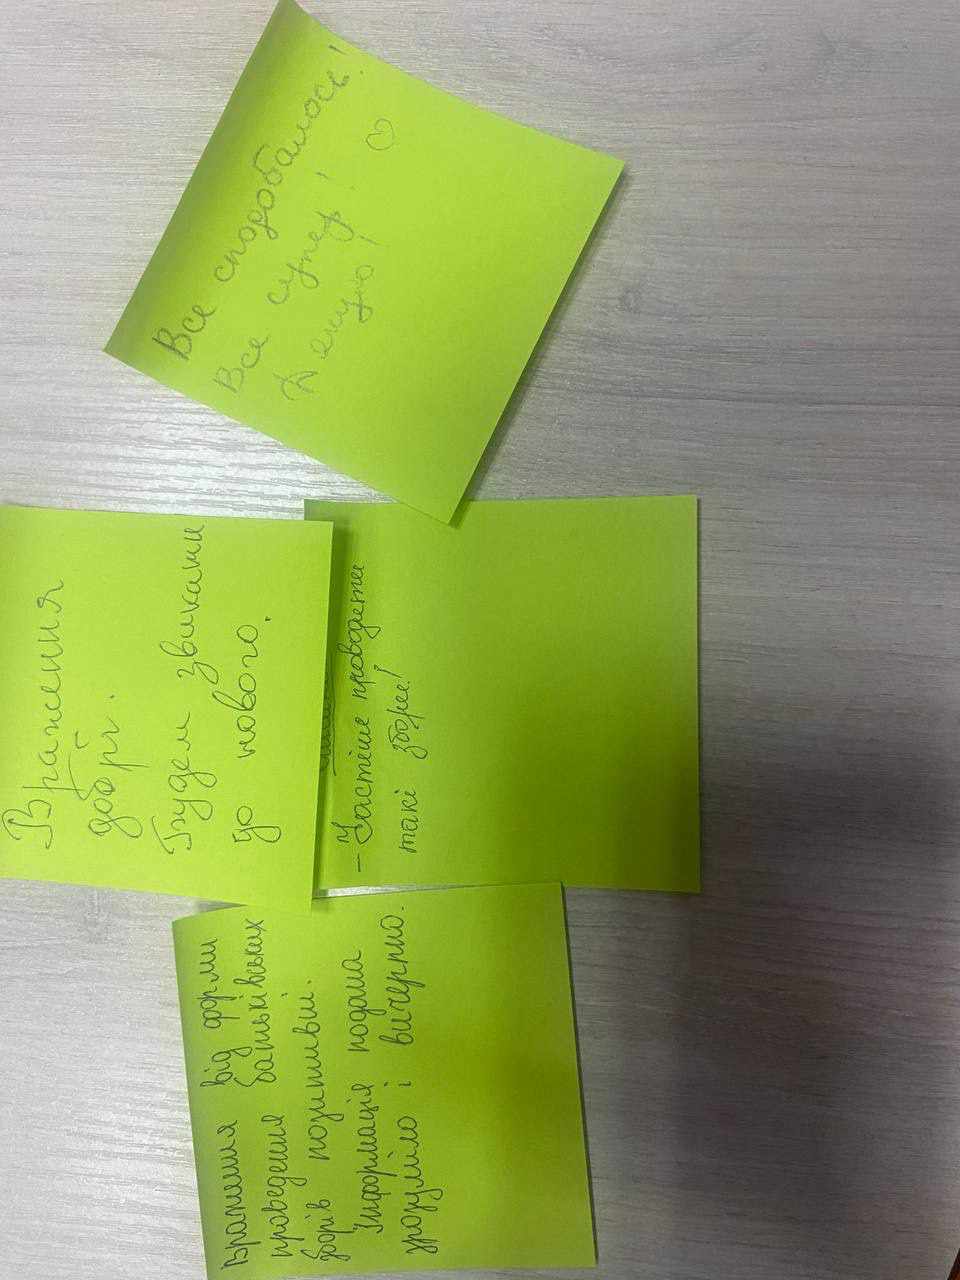 Все сподобалось!
Все супер! ♡
Дякую!
Враження
добрі.
Будем звикати
до нового.
- Частіше проводьте
такі збори!
Враження від форми
проведення батьківських
зборів позитивні.
Інформація подана
зрозуміло і вичерпно.